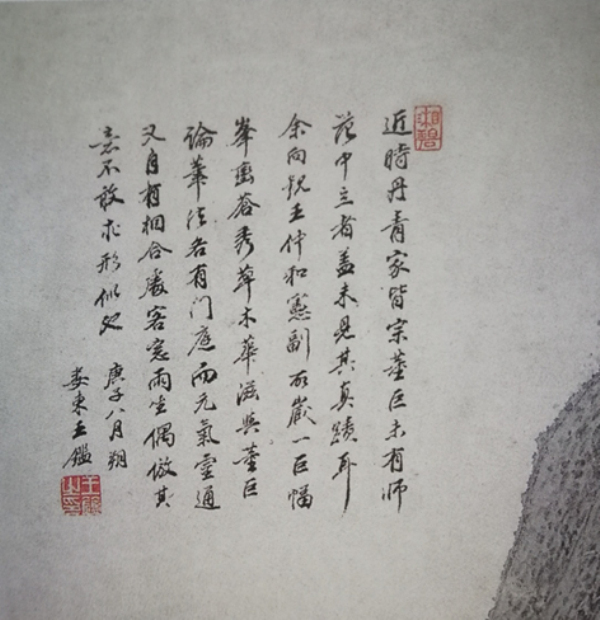 近時丹青家皆宗董巨未有師
范中立者蓋未見其真蹟耳
余向觀王仲和憲副所藏一巨幅
峯巒蒼秀草木華滋與董巨
論筆法各有门庭而元氣靈通
又自有相合處客窓雨坐偶倣其
意不敢求形似也
庚子八月朔
婁東王鑑
湘碧